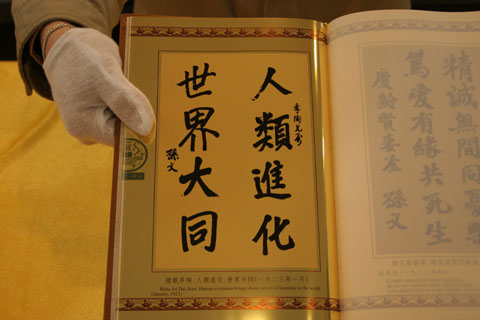 人類進化
季陶兄屬
世界大同
孫文
贈戴季陶:人類進化,世界大同(一九二三年一月)
Wrote for Dai Jitao: Human evolution brings about universal harmony in the world
(January, 1923)
精誠無間同憂樂
篤愛有緣共死生
慶齡賢妻鑒
孫文